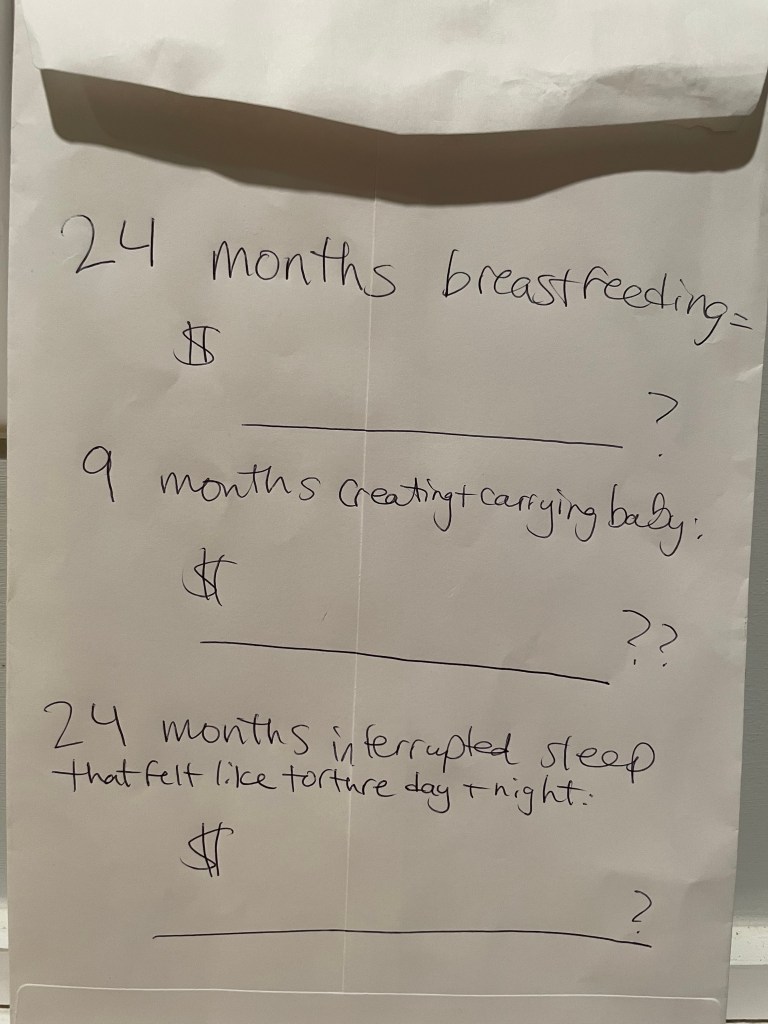 24 months breastfeeding=
$
?
9 months creating+carrying baby:
$
??
24 months interrupted sleep
that felt like torture day + night:
$
?